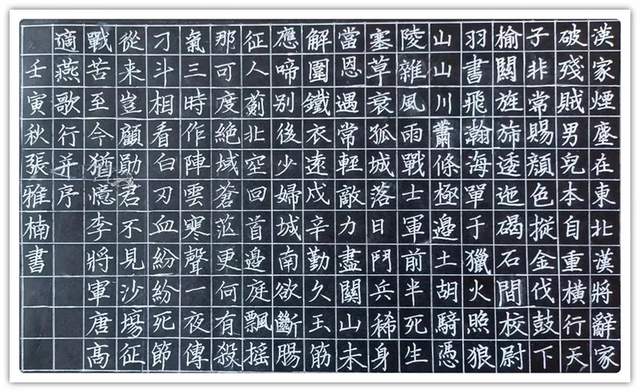 漢家煙塵在東北漢將辭家
破殘賊男兒本自重橫行天
子非常賜顏色摐金伐鼓下
榆關旌旆逶迤碣石間校尉
羽書飛瀚海單于獵火照狼
山山川蕭條極邊土胡騎憑
陵雜風雨戰士軍前半死生
塞草衰孤城落日鬥兵稀身
當恩遇常輕敵力盡關山未
解圍鐵衣遠戍辛勤久玉筋
應啼別後少婦城南欲斷腸
征人薊北空回首邊庭飄搖
那可度絕域蒼茫更何有殺
氣三時作陣雲寒聲一夜傳
刁斗相看白刃血紛紛死節
從来豈顧勛君不見沙場征
戰苦至今猶憶李將軍唐高
適燕歌行并序
壬寅秋張雅楠書